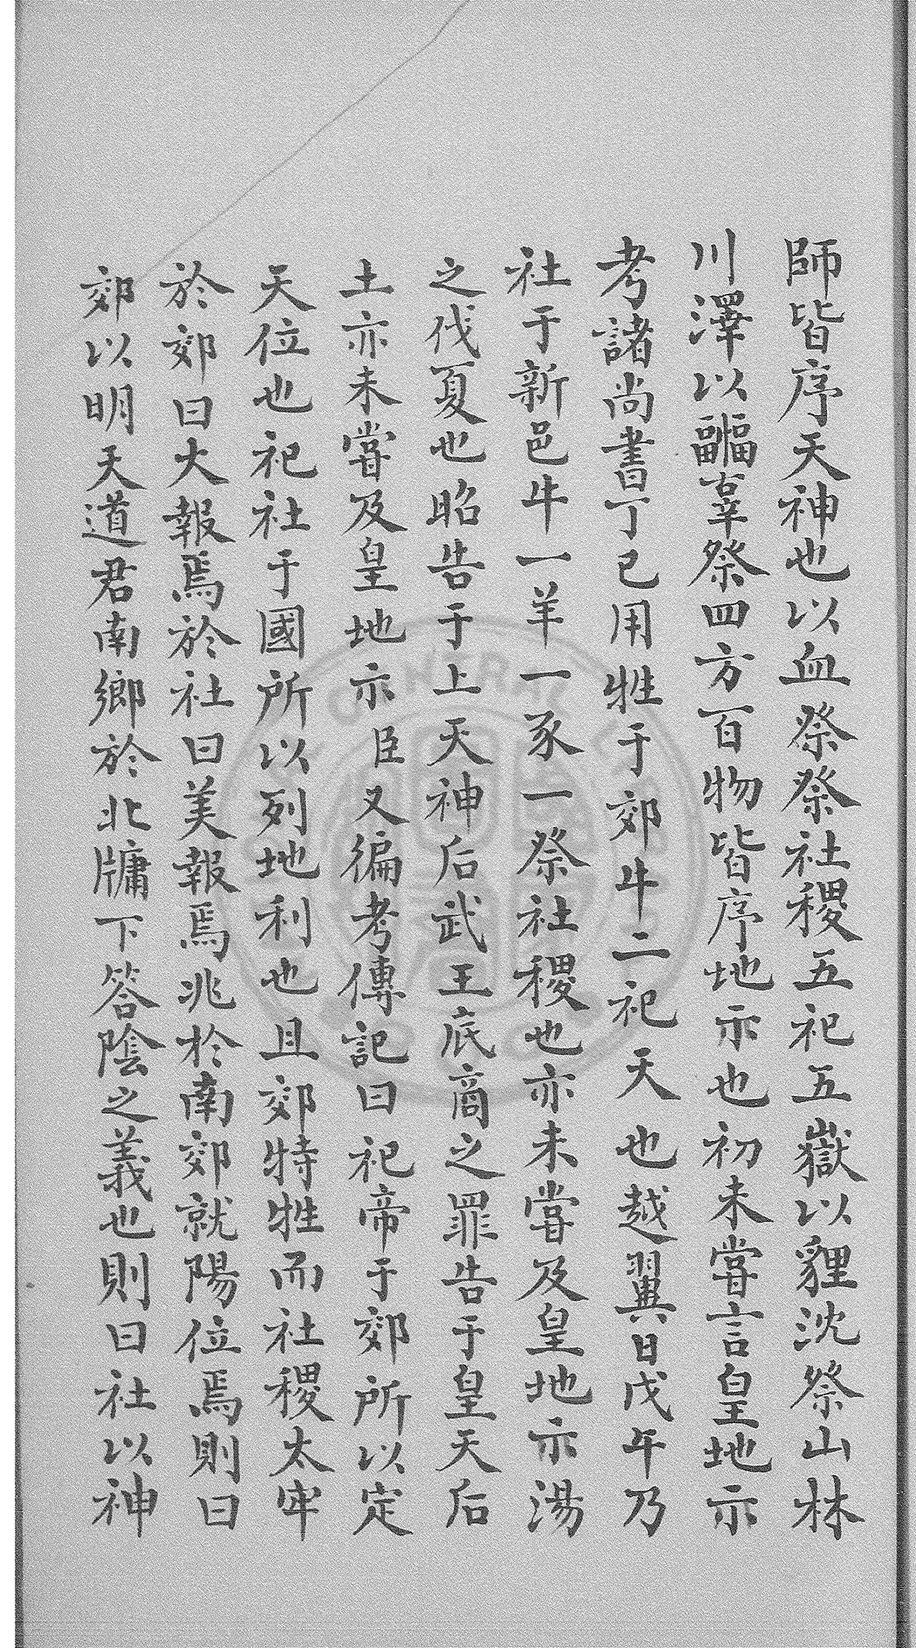 師皆序天神也以血祭祭社稷五祀五嶽以貍沈祭山林
川澤以疈辜祭四方百物皆序地示也初未嘗言皇地示
考諸尚書丁巳用牲于郊牛二祀天也越翼日戊午乃
社于新邑牛一羊一豕一祭社稷也亦未嘗及皇地示湯
之伐夏也昭告于上天神后武王底商之罪告于皇天后
土亦未嘗及皇地示臣又徧考傳記曰祀帝于郊所以定
天位也祀社于國所以列地利也且郊特牲而社稷太牢
於郊曰大報焉於社曰美報焉兆於南郊就陽位焉則曰
郊以明天道君南鄉於北牗下答陰之義也則曰社以神